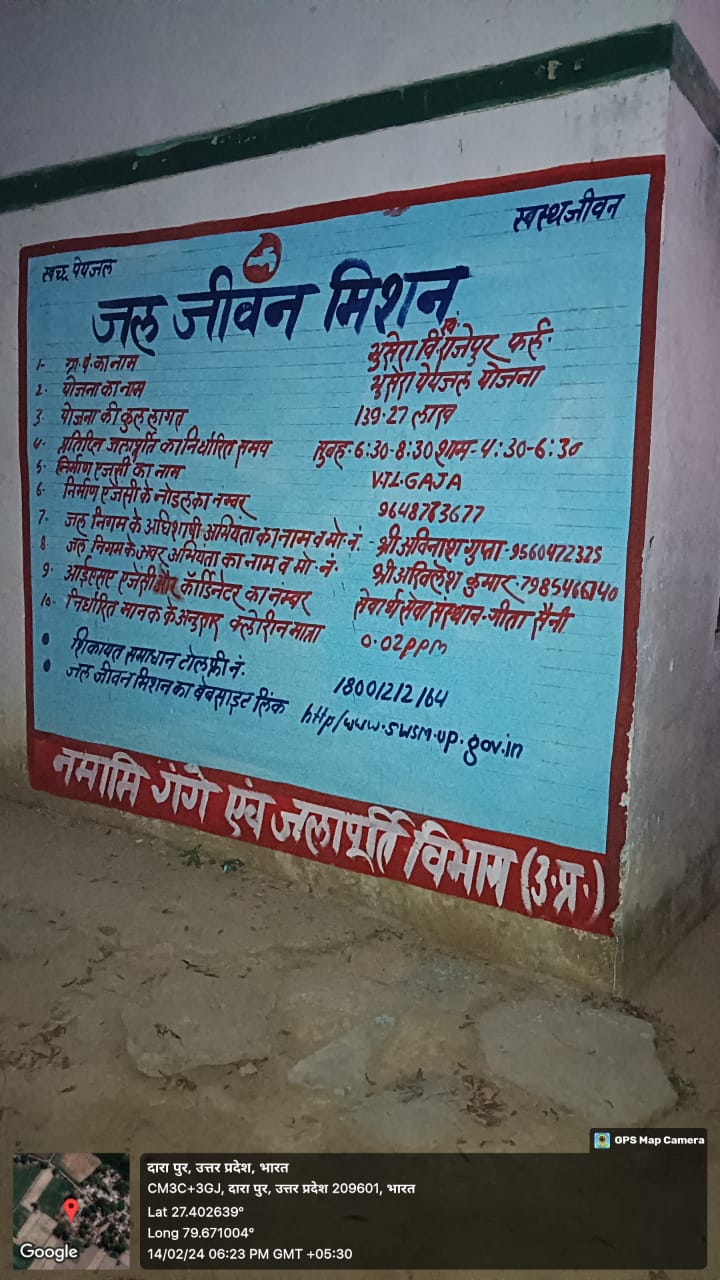 स्वच्छ पेयजल
स्वस्थ जीवन
जल जीवन मिशन
1- ग्रा. पं. का नाम भुसेरा वि.ख. राजेपुर फर्रु.
2- योजना का नाम भुसेरा पेयजल योजना
3- योजना की कुल लागत 139.27 लाख
4- प्रतिदिन जलापूर्ति का निर्धारित समय सुबह-6:30-8:30 शाम-4:30-6:30
5- निर्माण एजेंसी का नाम V.T.L-GAJA
6- निर्माण एजेंसी के नोडल का नम्बर 9648783677
7- जल निगम के अधिशाषी अभियंता का नाम व मो. नं.- श्री अविनाश गुप्ता-9560472325
8- जल निगम के अवर अभियंता का नाम व मो. नं. श्री अखिलेश कुमार-7985466140
9- आईएसए एजेंसी और कॉर्डिनेटर का नंम्बर सेवार्थ सेवा संस्थान-गीता सैनी
10- निर्धारित मानक के अनुसार क्लोरीन मात्रा 0.02ppm
• शिकायत समाधान टोल फ्री नं. 18001212164
• जल जीवन मिशन का वेबसाइट लिंक http/www.swsm.up.gov.in
नमामि गंगे एवं जलापूर्ति विभाग (उ.प्र.)
GPS Map Camera
दारा पुर, उत्तर प्रदेश, भारत
CM3C+3GJ, दारा पुर, उत्तर प्रदेश 209601, भारत
Lat 27.402639°
Long 79.671004°
14/02/24 06:23 PM GMT +05:30
Google